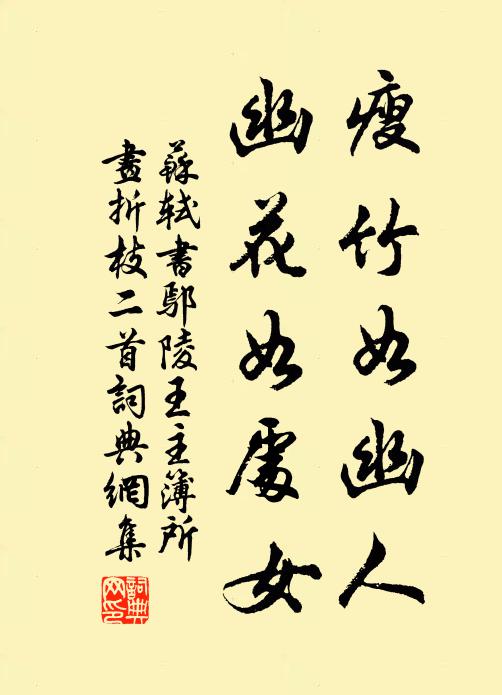 瘦竹如幽人
幽花如處女
蘇軾書鄢陵王主簿所
畫折枝二首詞典網集
詞典
网印